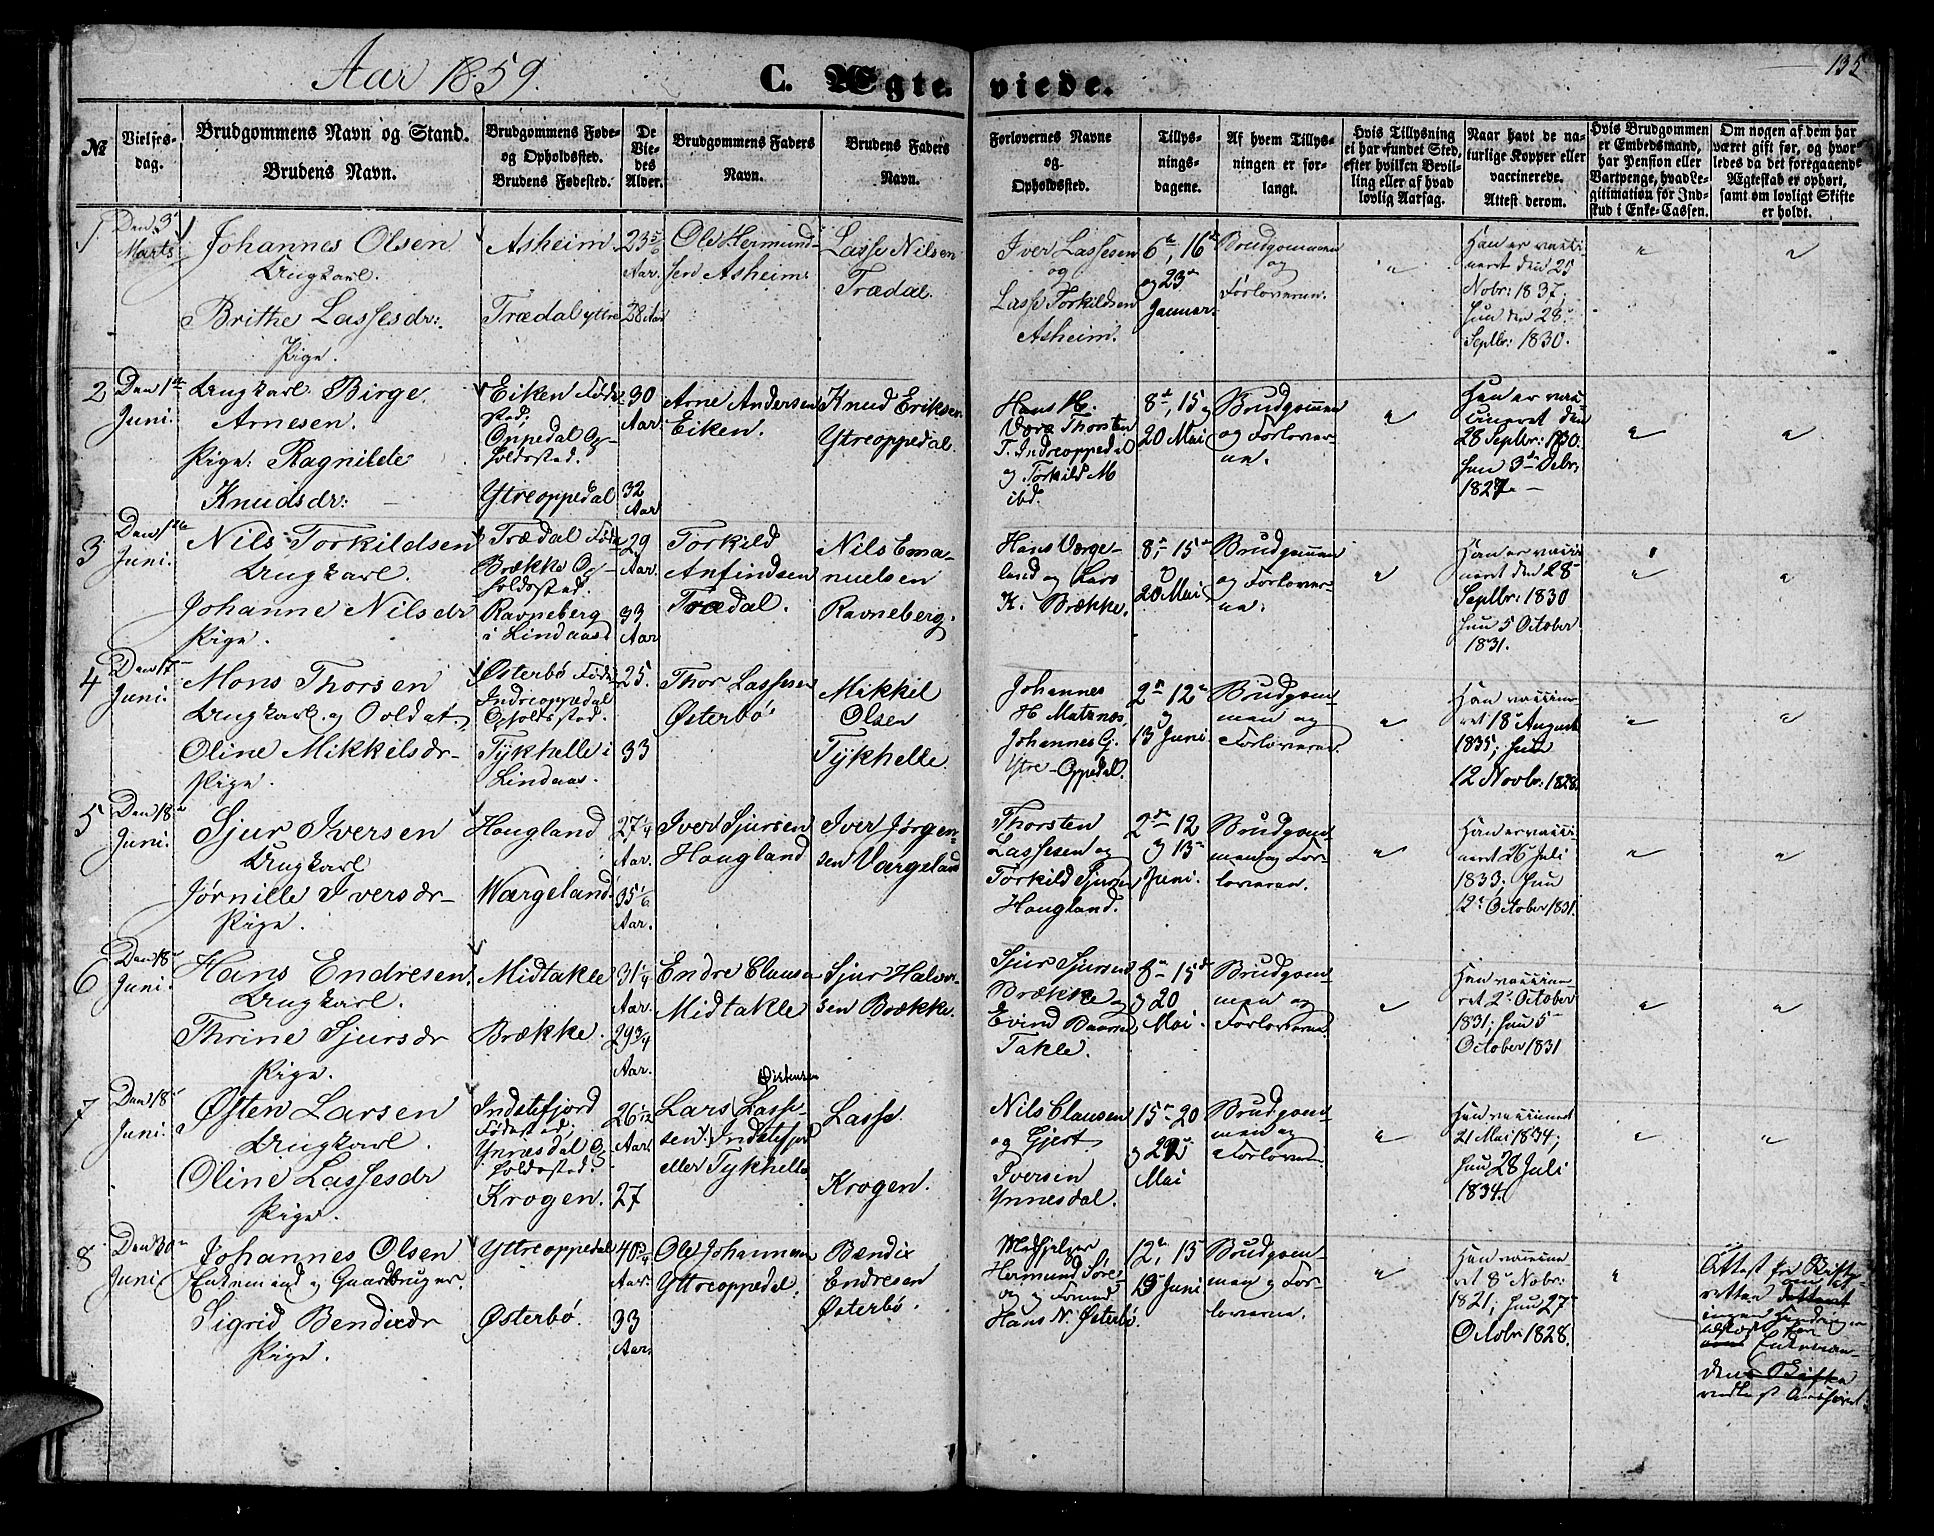 Aar 1859.
C. Ægteviede.
135
№
Vielses-
dag.
Brudgommens Navn og Stand.
Brudens Navn.
Brudgommens Føde-
og Opholdssted.
Brudens Fødested.
De
Vie-
des
Alder.
Brudgommens Faders
Navn.
Brudens Faders
Navn.
Forlovernes Navne
og
Opholdssted.
Tillys-
nings-
dagene.
Af hvem Tillys-
ningen er for-
langt.
Hvis Tillysning
ei har fundet Sted,
efter hvilken Bevil-
ling eller af hvad
lovlig Aarsag.
Naar havt de na-
turlige Kopper eller
vaccinerede.
Attest derom.
Hvis Brudgommen
er Embedsmand,
har Pension eller
Vartpenge, hvad Le-
gitimation for Ind-
skud i Enke-Cassen.
Om nogen af dem har
været gift før, og hvor-
ledes da det foregaaende
Ægteskab er ophørt,
samt om lovligt Skifte
er holdt.
1
Den 3
Marts
Johannes Olsen
Ungkarl.
Brithe Lassesdr:
Pige.
Asheim
Trædal yttre
23 5/6
Aar.
28 Aar
Ole Hermund-
sen Asheim
Lasse Nilsen
Trædal.
Iver Lassesen
og
Lasse Torkildsen
Asheim.
6, 16
og 23
Januar.
Brudgommen
og
Forloveren.
Han er vacci-
neret den 25
Nobr: 1837,
hun den 28
Septbr: 1830.
2
Den 1ste
Juni.
Ungkarl Birge
Arnesen.
Pige: Ragnilde
Knudsdr:
Eiken Føde-
sted;
Oppedal Op-
holdssted.
Ytreoppedal
30
Aar.
32
Aar
Arne Andersen
Eiken.
Knud Eriksen
Ytreoppedal.
Hans H.
Thorsten
T. Indreoppedal
og Torkild M
ibd.
8, 15 og
20 Mai
Brudgommen
og Forlover-
en.
Han er vac-
cineret den
28 Septbr: 1730.
hun 3 Debr.
1827.
3
Den
Juni.
Nils Torkildsen
Ungkarl.
Johanne Nilsdr
Pige.
Trædal Føde
Brække Op-
holdssted.
Ravneberg
i Lindaas
29
Aar.
33
Aar
Torkild
Anfindsen
Trædal.
Nils Ema-
nuelsen
Ravneberg.
Hans Værge-
land og Lars
K. Brække.
8, 15
og
20 Mai
Brudgommen
og Forlover-
en.
Han er vacci-
neret den 28
Septbr: 1830
hun 5 October
1831.
4
Den 17
Juni.
Mons Thorsen
Ungkarl og Soldat
Oline Mikkelsdr
Pige.
Østerbø Føde
Indreoppedal
Opholdssted.
Tykhelle i
Lindaas.
25.
33
Thor Lassesen
Østerbø
Mikkel
Olsen
Tykhelle
Johannes
H. Matznes
Johannes G.
Ytre-Oppedal.
2, 12
og
13 Juni.
Brudgom-
men og
Forloveren.
Han vaccine-
ret 18 August
1835; hun
12 Novbr: 1828.
5
Den 18
Juni.
Sjur Iversen
Ungkarl
Jørnille Iversdr
Pige.
Hougland
Wærgeland
27 1/4
Aar.
35 1/6
Aar.
Iver Sjursen
Hougland
Iver Jørgen-
sen Værgeland
Thorsten
Lassesen og
Torkild Sjursen
Hougland.
2, 12
og 13
Juni.
Brudgom-
men og For-
loveren.
Han er vacci-
neret 26 Juli
1833. hun
12 October 1831.
6
Den 18
Juni.
Hans Endresen.
Ungkarl.
Thrine Sjursdr
Pige.
Midtakle
Brække.
31 1/4
Aar.
29 3/4
Aar.
Endre Clausen
Midtakle
Sjur Halvor-
sen Brække.
Sjur Sjursen
Brække og
Evind
Takle.
8, 15
og 20
Mai.
Brudgom-
men og
Forloveren
Han vaccine-
ret 2 October
1831; hun 5
October 1831
7
Den 18
Juni.
Østen Larsen
Ungkarl.
Oline Lassesdr
Pige.
Indstefjord
Fødested;
Ynnesdal Op-
holdssted.
Krogen.
26 1/12
Aar.
27
Østensen
Lars (Lasse-
sen) Indstefjord
eller Tykhelle
Lasse
Krogen.
Nils Clausen
og Gjert
Iversen
Ynnesdal.
15, 20
og 22
Mai
Brudgom-
men og
Forloveren.
Han vaccineret
21 Mai 1834;
hun 28 Juli
1834.
8
Den 30
Juni
Johannes Olsen
Enkemand og Gaardbruger.
Sigrid Bendixdr
Pige.
Yttreoppedal
Østerbø.
40 3/4
Aar.
33
Aar.
Ole Johannesen
Yttreoppedal.
Bendix
Endresen
Østerbø.
Medhjelper
Hermund
og Formand
Hans N. Østerbø
12, 13
Juni
Brudgom-
men og For-
loverne.
Han vaccine-
ret 8 Nobr:
1821, hun 27
Octobr 1828.
Attest fra Skifte-
retten
ingen
Enkeman-
dens Skifte